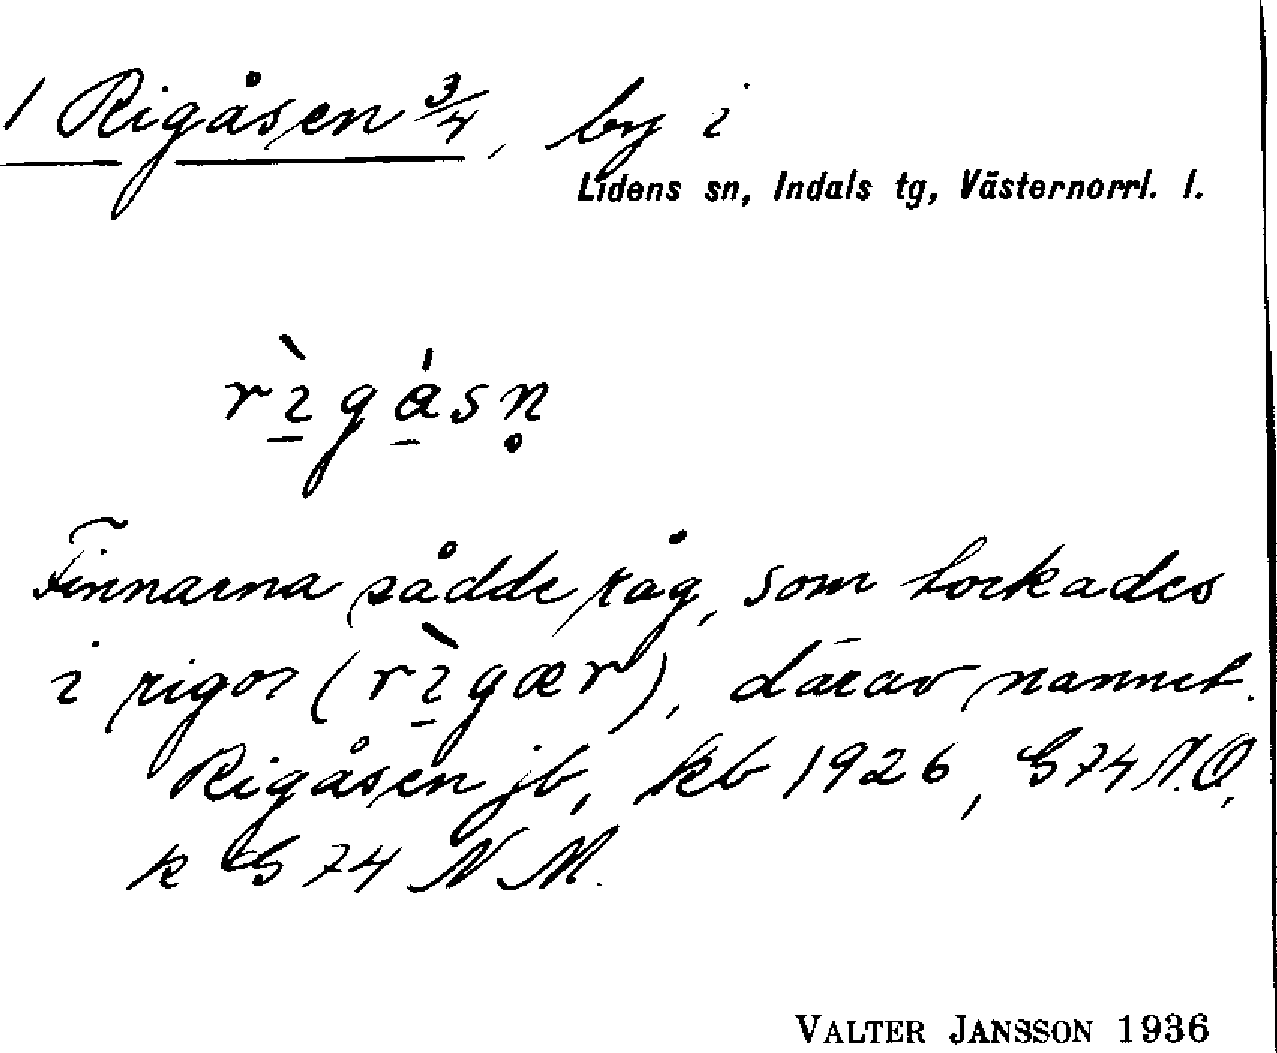 1 Rigåsen 3/4, by i
Lidens sn, Indals tg, Västernorrl. l.
rı̱̀gá̱sn̥
Finnarna sådde råg, som torkades
i rigor (rı̱̀gær), därav namnet.
Rigåsen jb, kb 1926, G 74 N.O,
k G 74 NM.
VALTER JANSSON 1936